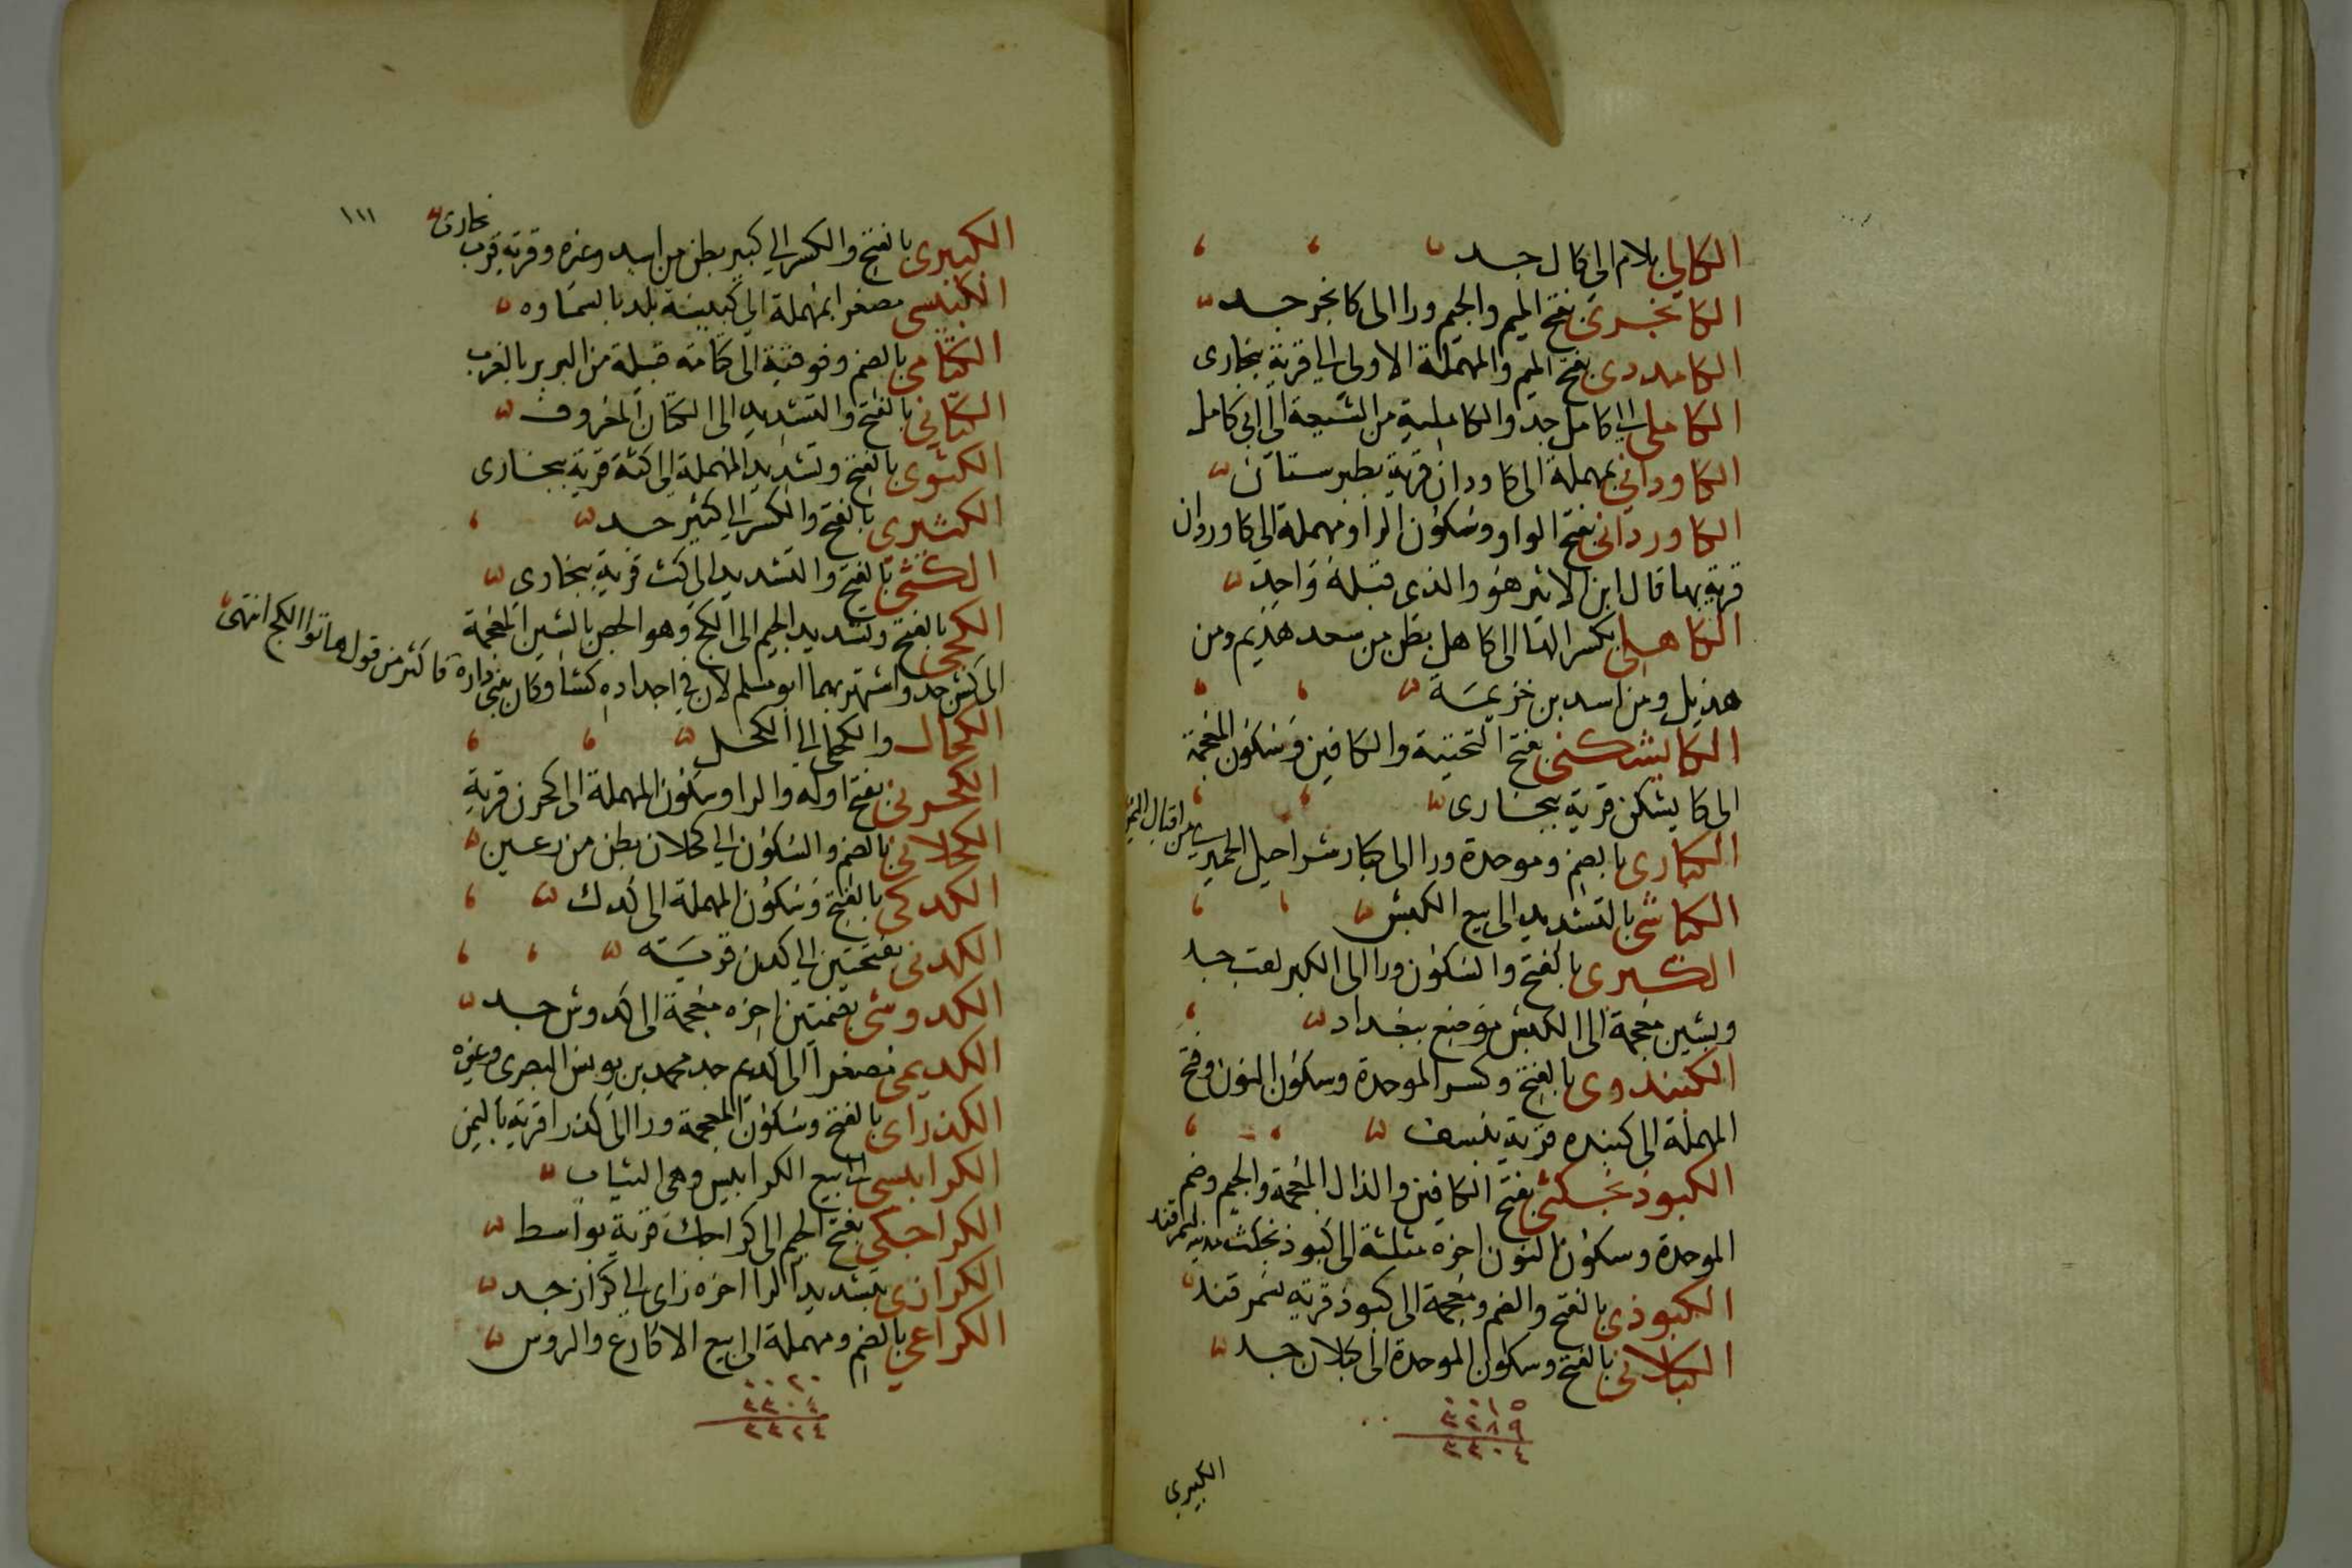 الكالي بلام الى كال جد
الكامجري بفتح الميم والجيم ورا الى كامجر جد
الكامددى بفتح الميم والمهملة الاولى الى قرية بخارى
الكاملى الى كامل جد والكاملية من الشيعة الى ابى كامل
الكاوداني بمهملة الى كاودان قرية بطبرستان
الكاوردانى بفتح الواو وسكون الرا ومهملة الى كاوردان
قرية بها قال ابن الاثير هو والذى قبله واحد
الكاهلى بكسر الها الى كاهل بطن من سعد هذيم ومن
هذيل ومن اسد بن خزيمة
الكايشكنى بفتح التحتية والكافين وسكون المعجمة
الى كايشكن قرية ببخارى
الكبارى بالضم وموحدة ورا الى كبار شراحيل الحميرى من اقيال اليمن
الكباشى بالتشديد الى بيع الكبش
الكبرى بالفتح والسكون ورا الى الكبر لقب جد
وبشين معجمة الى الكبش موضع ببغداد
الكبندوى بالفتح وكسر الموحدة وسكون النون وفتح
المهملة الى كبنده قرية بنسف
الكبوذنجكثى بفتح الكافين والذال المعجمة والجيم وضم
الموحدة وسكون النون اخره مثلثة الى كبوذنجكث مدينة بسمرقند
الكبوذى بالفتح والضم ومعجمة الى كبوذ قرية بسمرقند
الكبلانى بالفتح وسكون الموحدة الى كبلان جد
٠٠١٥
٣٢٨٩
٣٣٠٤
الكبيرى
١١١
الكبيرى بالفتح والكسر الى كبير بطن من اسد وغيره وقرية قرب بخارى
الكبيسى مصغرا بمهملة الى كبيسة بلد بالسماوه
الكتامى بالضم وفوقية الى كتامة قبيلة من البربر بالغرب
الكتانى بالفتح والتشديد الى الكتان المعروف
الكثوى بالفتح وتشديد المهملة الى كثة قرية ببخارى
الكثيرى بالفتح والكسر الى كثير جد
الكثى بالفتح والتشديد الى كث قرية ببخارى
الكجى بالفتح وتشديد الجيم الى الكج وهو الجص بالشين المعجمة
الى كش جد واشتهر بهما ابو مسلم لان في اجداده كشا وكان يبنى داره فاكثر من قول هاتوا الكج انتهى
الكحال والكحلى الى الكحل
الكحرنى بفتح اوله والرا وسكون المهملة الى كحرن قرية
الكحلانى بالضم والسكون الى كحلان بطن من رعين
الكدكى بالفتح وسكون المهملة الى كدك
الكدنى بفتحتين الى كدن قرية
الكدوشى بضمتين اخره معجمة الى كدوش جد
الكديمى مصغرا الى كديم جد محمد بن يونس البصرى وغيره
الكذراى بالفتح وسكون المعجمة ورا الى كذرا قرية باليمن
الكرابيسى الى بيع الكرابيس وهى الثياب
الكراجكى بفتح الجيم الى كراجك قرية بواسط
الكرازى بتشديد الرا اخره زاى الى كراز جد
الكراعى بالضم ومهملة الى بيع الاكارع والروس
٠٠٢٠
٣٣٠٤
٣٣٢٤